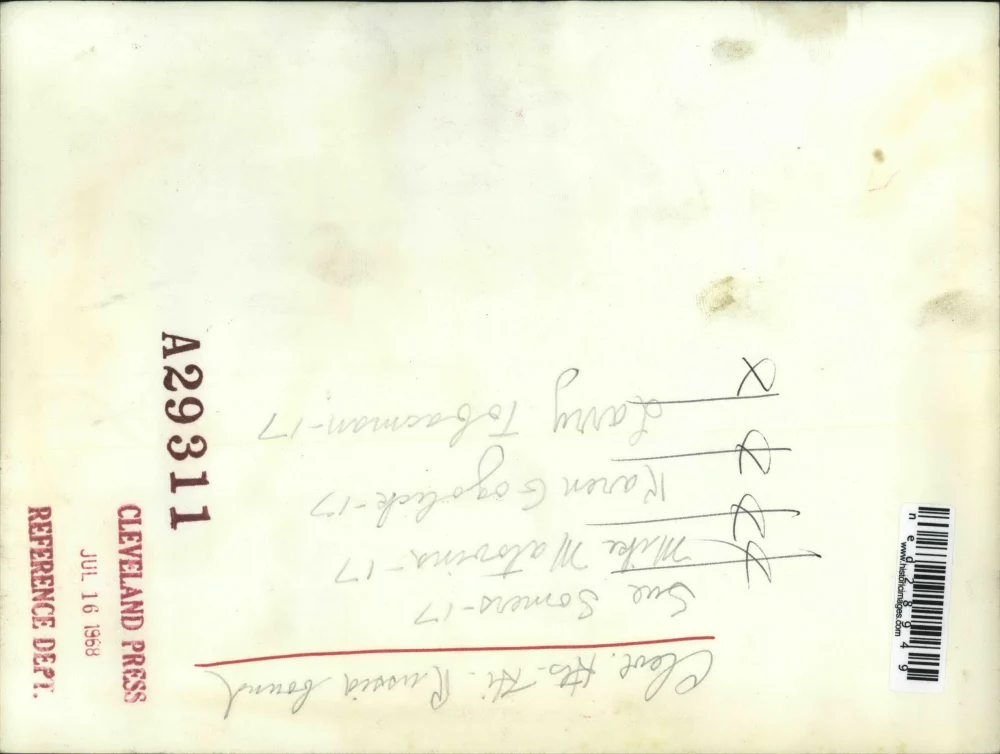 Cleve. Hts. Hi. Russia bound
Sue Somers-17
Mike Matovina-17
Karen Gogolick-17
Larry Tobasman-17
A29311
CLEVELAND PRESS
JUL 16 1968
REFERENCE DEPT.
www.historicimages.com
ned28949